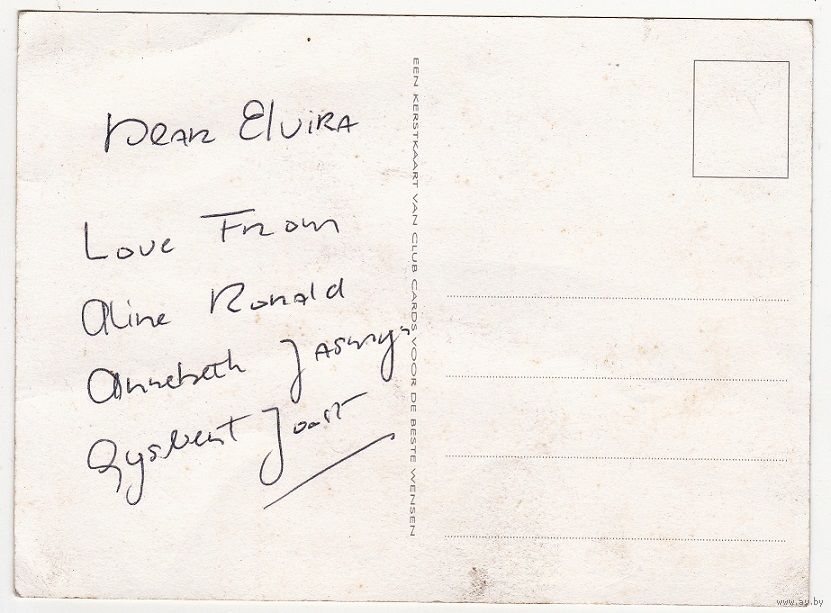 Dear Elvira
Love From
Aline Ronald
Annebeth Jasmyn
Gysbert Joost
EEN KERSTKAART VAN CLUB CARDS VOOR DE BESTE WENSEN
www.ay.by